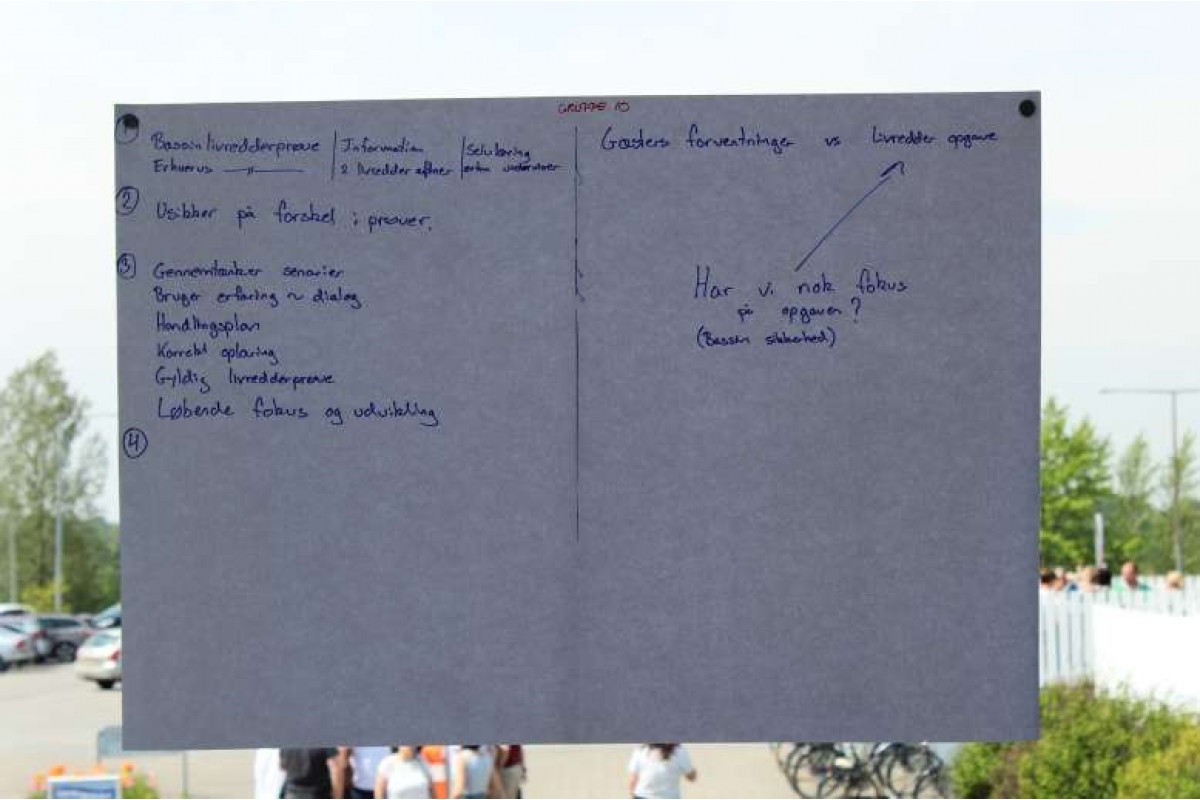 GRUPPE 10
① Bassinlivredderprøve | Information | Selvlæring
Erhvervs —〃— | 2 livredder aftner | undervisner
② Usikker på forskel i prøver.
③ Gennemtænker senarier
Bruger erfaring ~ dialog
Handlingsplan
Korrekt oplæring
Gyldig livredderprøve
Løbende fokus og udvikling
④
Gæsters forventninger vs Livredder opgave
Har vi nok fokus
på opgaven?
(Bassin sikkerhed)